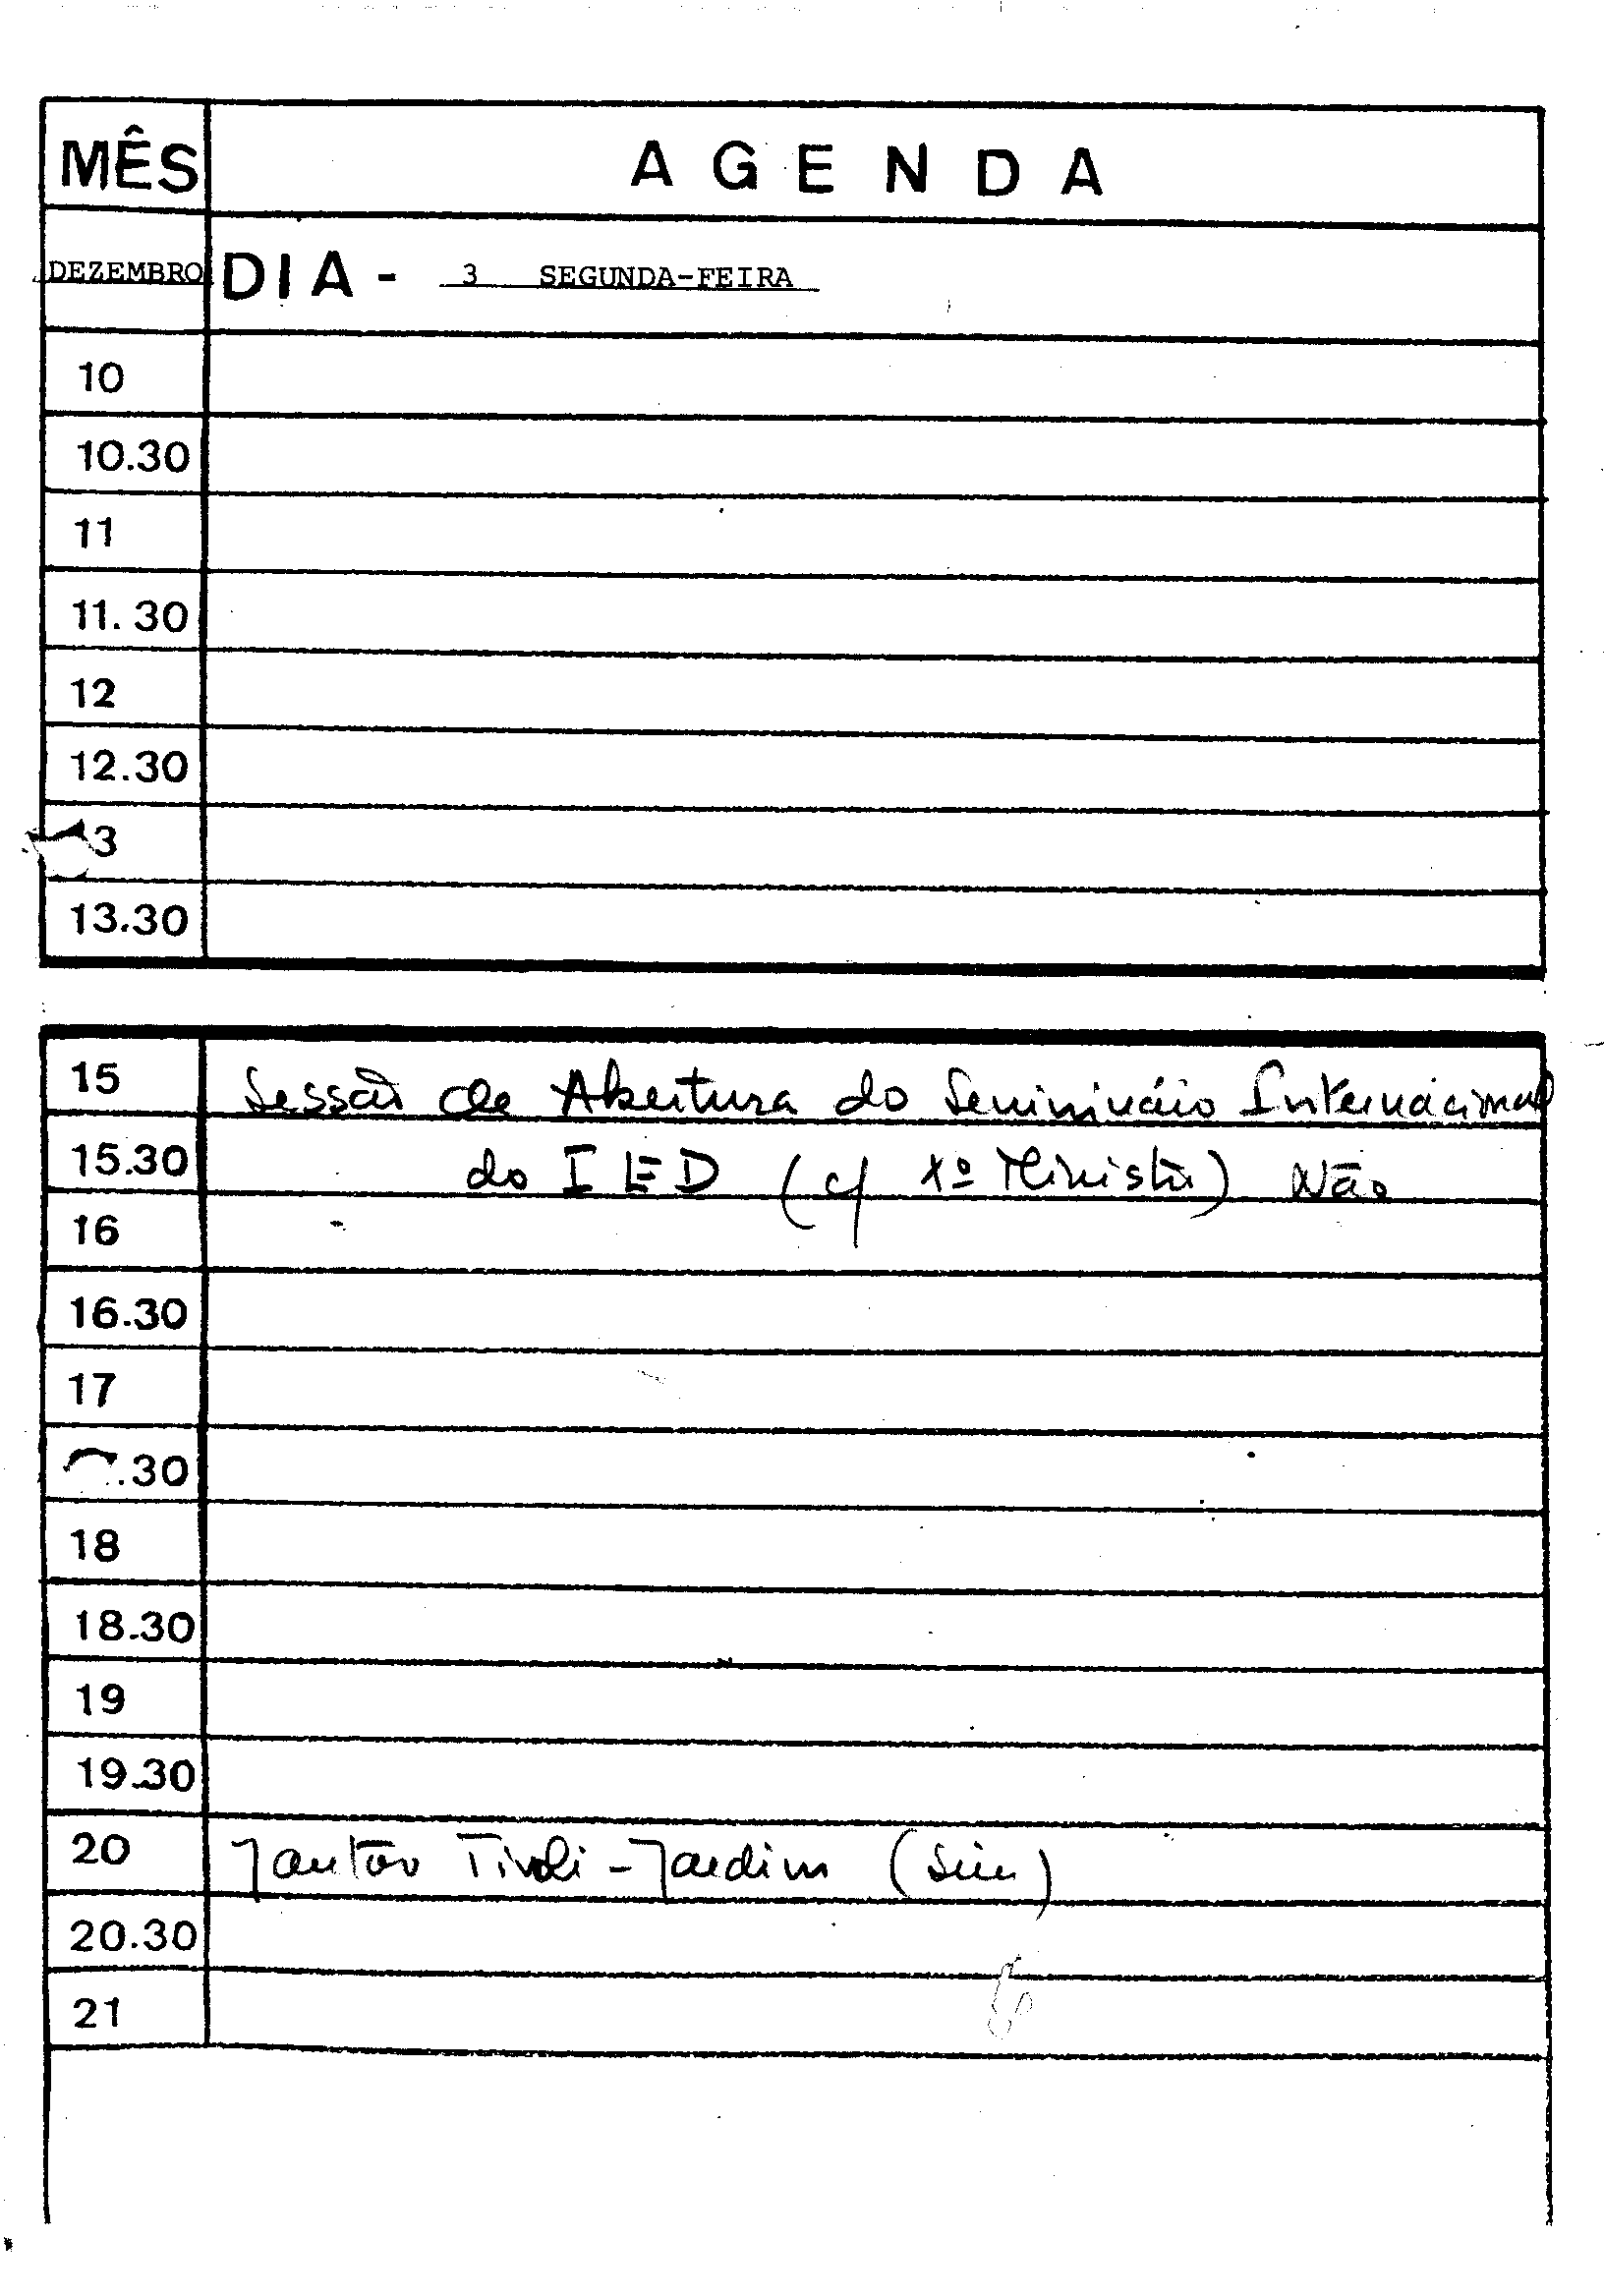 MÊS A G E N D A
DEZEMBRO DIA - 3 SEGUNDA-FEIRA
10
10.30
11
11.30
12
12.30
3
13.30
15 Sessão de Abertura do Semininário Internacional
15.30 do IED (c/ 1º Ministro) Não
16
16.30
17
.30
18
18.30
19
19.30
20 Jantar Tivoli-Jardim (sim)
20.30
21